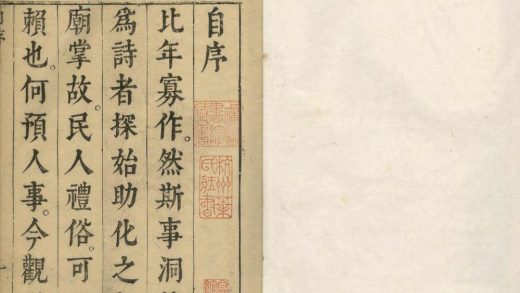 自序
杭州葉氏藏書
比年寡作。然斯事洞
爲詩者探始助化之
廟掌故。民人禮俗。可
賴也。何預人事。今觀